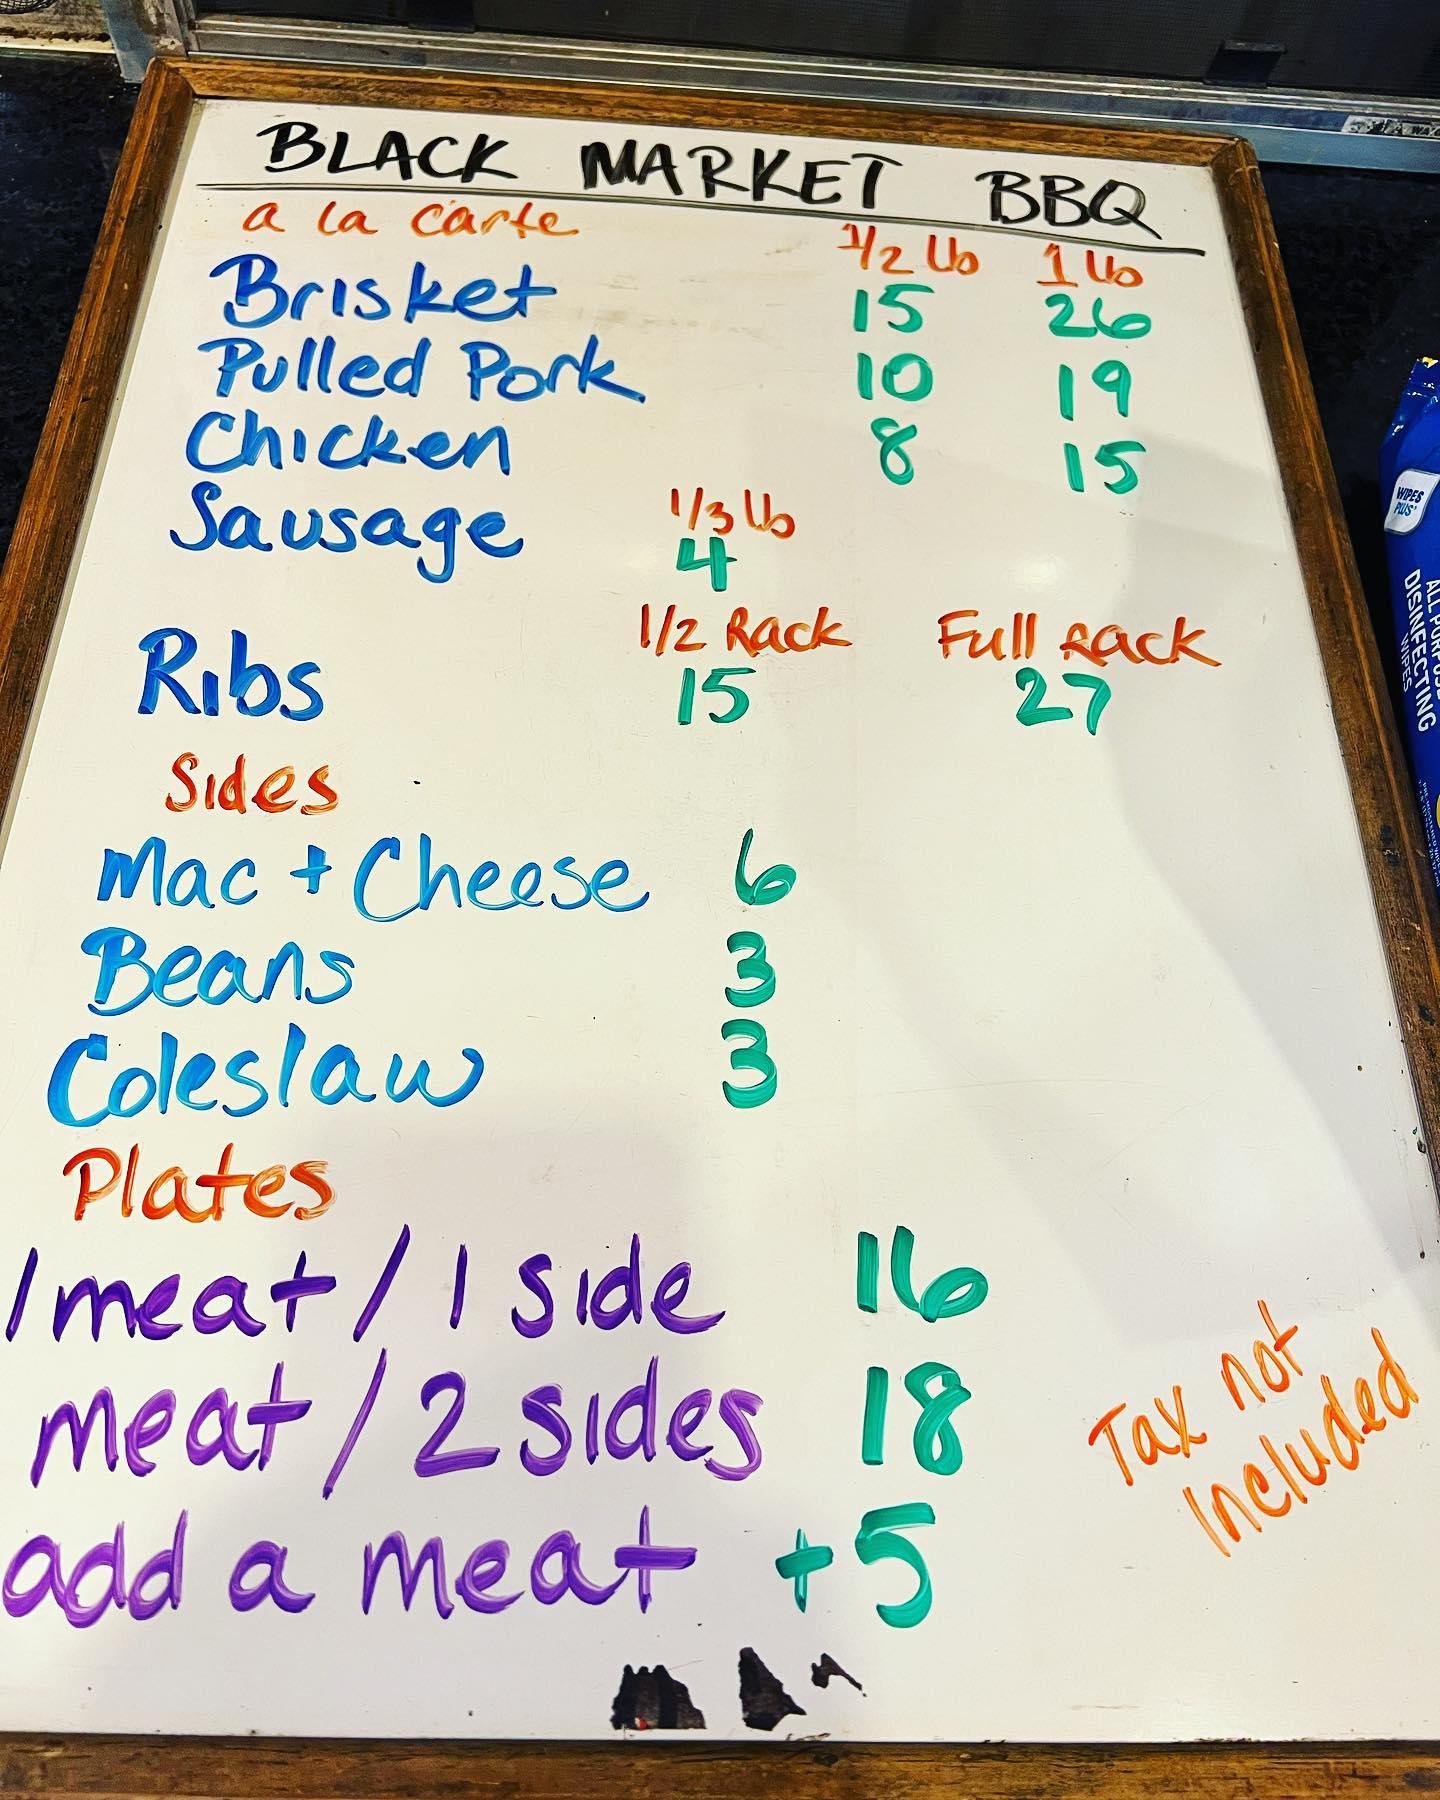 BLACK MARKET BBQ
a la carte 1/2 lb 1 lb
Brisket 15 26
Pulled Pork 10 19
Chicken 8 15
Sausage 1/3 lb
4
Ribs 1/2 Rack Full Rack
15 27
Sides
Mac + Cheese 6
Beans 3
Coleslaw 3
Plates
1 meat / 1 side 16
meat / 2 sides 18
add a meat +5
Tax not
Included
WIPES
PLUS
ALL PURPOSE
DISINFECTING
WIPES